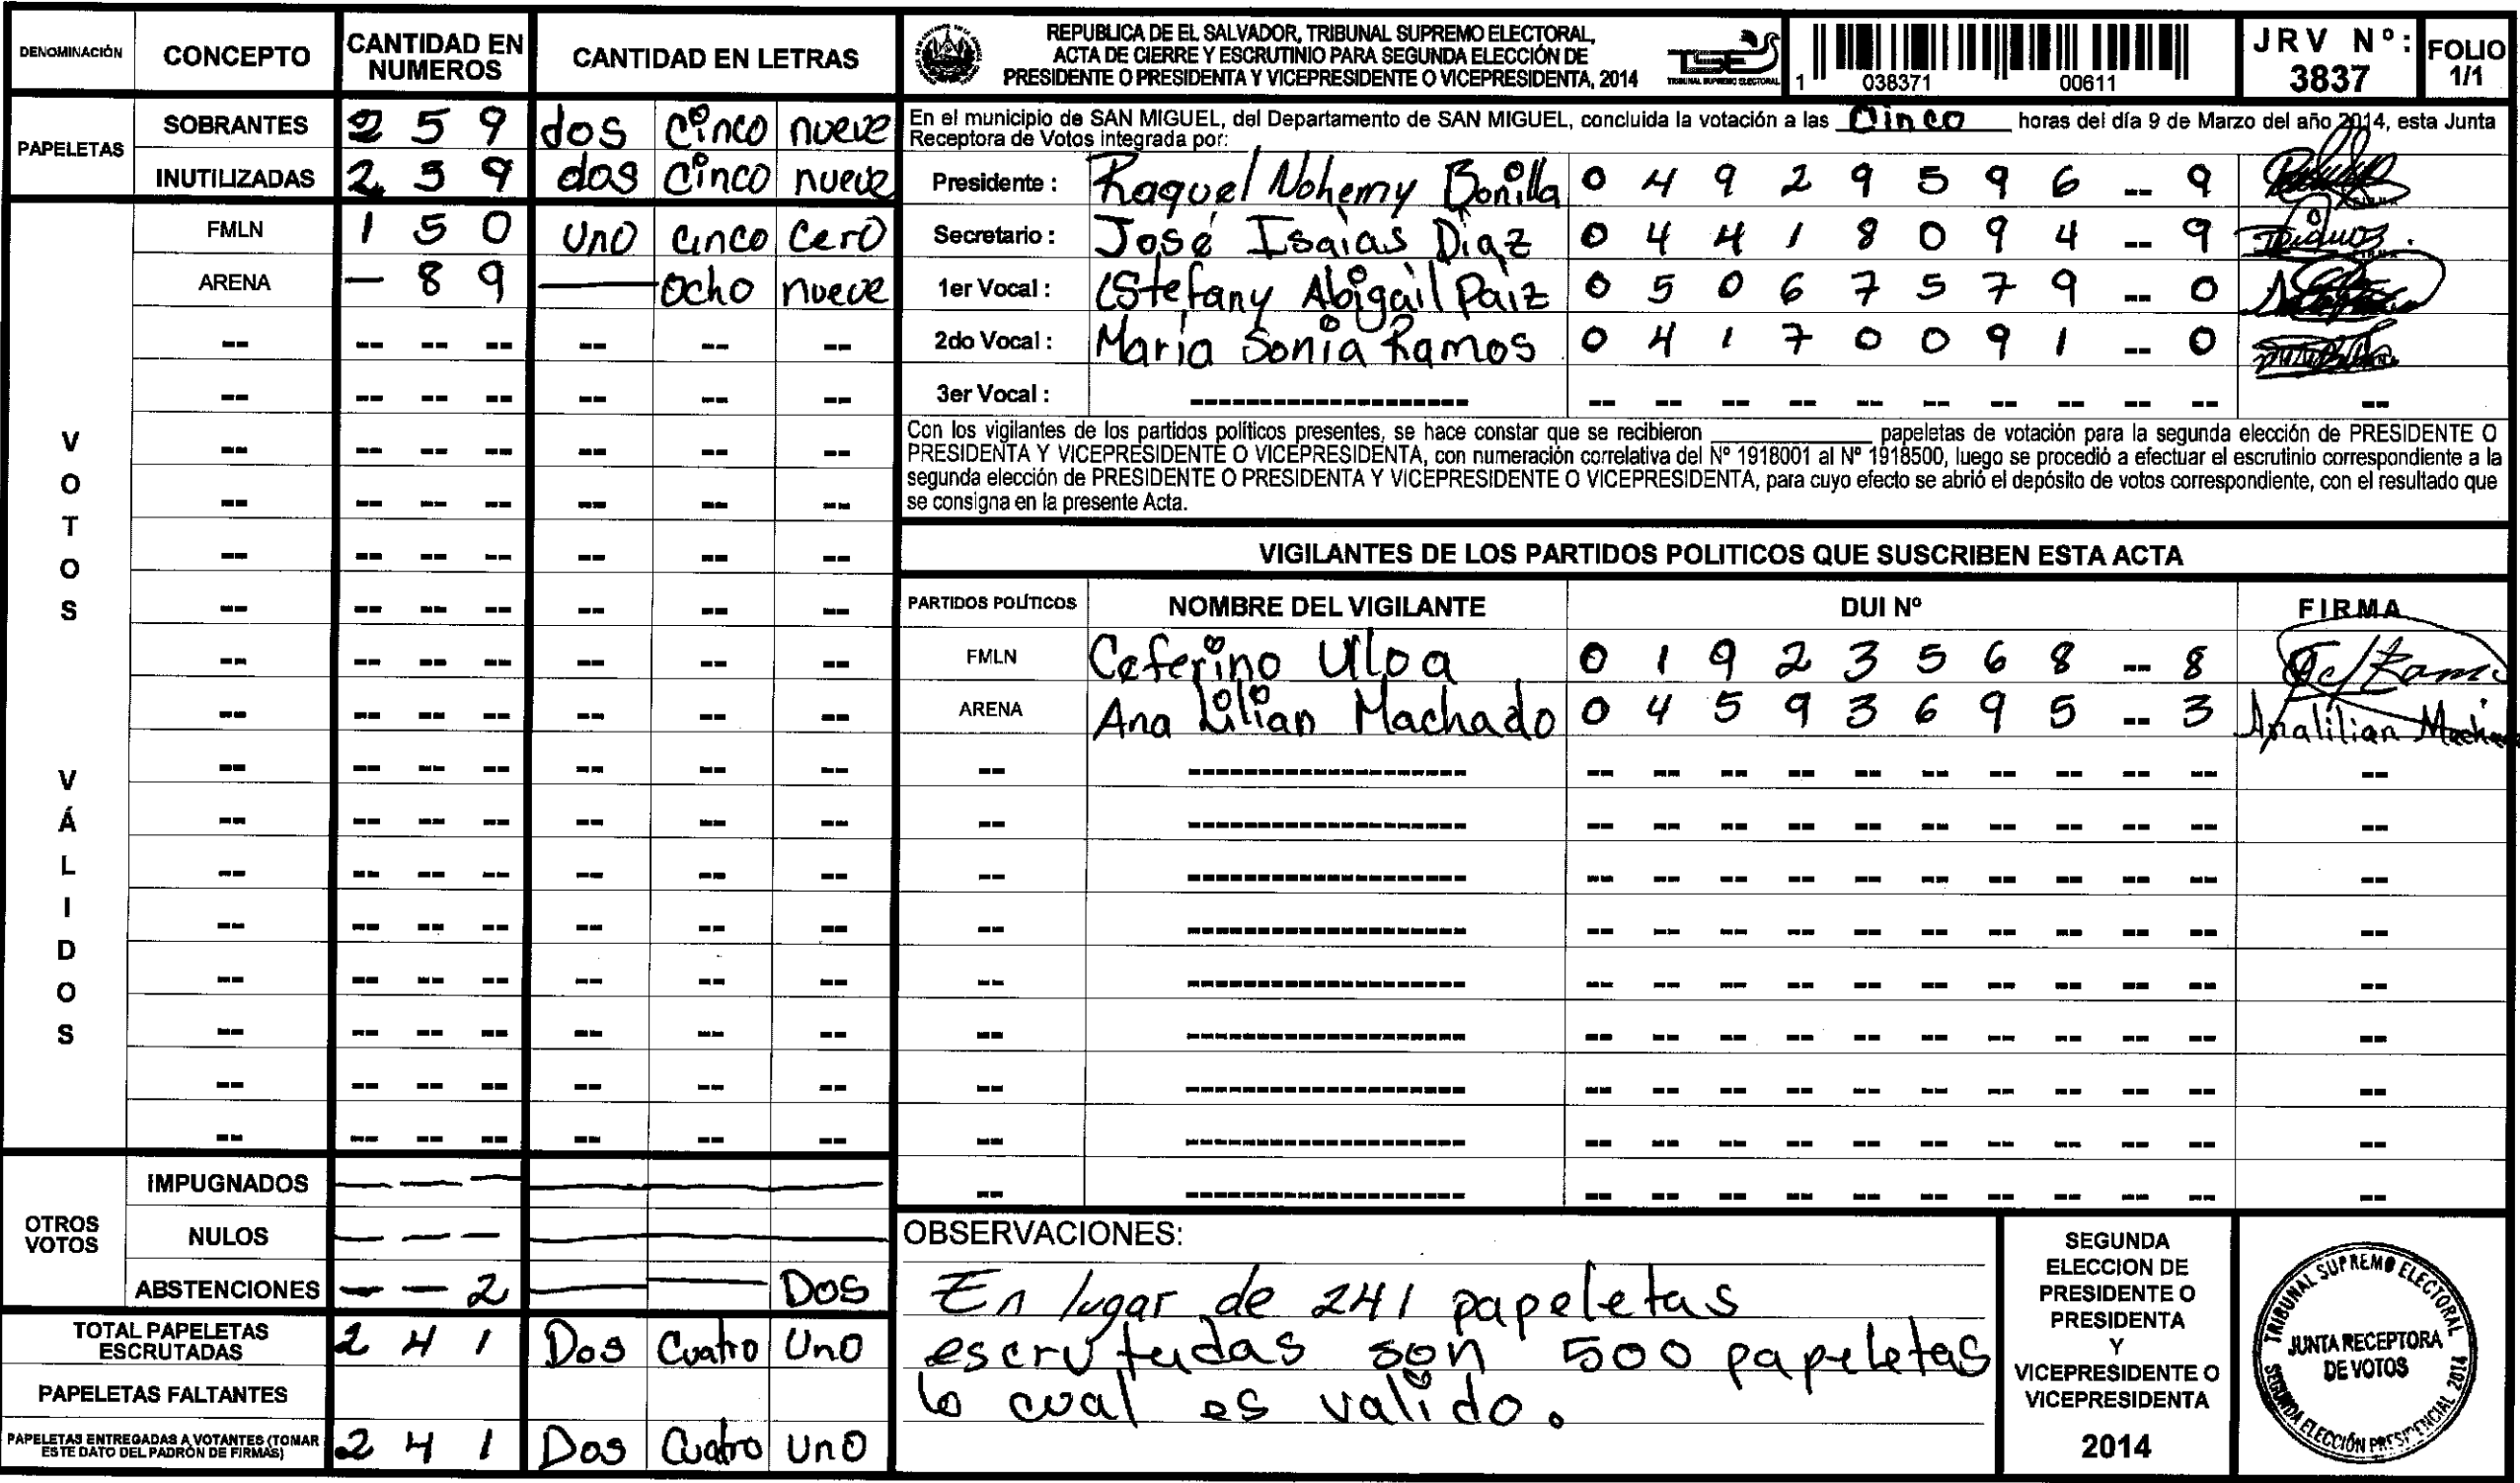 DENOMINACIÓN CONCEPTO CANTIDAD EN NUMEROS CANTIDAD EN LETRAS
PAPELETAS
SOBRANTES 2 5 9 dos cinco nueve
INUTILIZADAS 2 5 9 dos cinco nueve
VOTOS VÁLIDOS
FMLN 1 5 0 uno cinco cero
ARENA - 8 9 — ocho nueve
OTROS VOTOS
IMPUGNADOS — — —
NULOS — — —
ABSTENCIONES — — 2 — — Dos
TOTAL PAPELETAS ESCRUTADAS 2 4 1 Dos Cuatro Uno
PAPELETAS FALTANTES
PAPELETAS ENTREGADAS A VOTANTES (TOMAR ESTE DATO DEL PADRÓN DE FIRMAS) 2 4 1 Dos Cuatro Uno
REPUBLICA DE EL SALVADOR, TRIBUNAL SUPREMO ELECTORAL,
ACTA DE CIERRE Y ESCRUTINIO PARA SEGUNDA ELECCIÓN DE
PRESIDENTE O PRESIDENTA Y VICEPRESIDENTE O VICEPRESIDENTA, 2014
TSE
TRIBUNAL SUPREMO ELECTORAL
1 038371 00611
JRV Nº: 3837
FOLIO 1/1
En el municipio de SAN MIGUEL, del Departamento de SAN MIGUEL, concluida la votación a las Cinco horas del día 9 de Marzo del año 2014, esta Junta
Receptora de Votos integrada por:
Presidente : Raquel Nohemy Bonilla 0 4 9 2 9 5 9 6 -- 9
Secretario : José Isaías Diaz 0 4 4 1 8 0 9 4 -- 9
1er Vocal : Estefany Abigail Paiz 0 5 0 6 7 5 7 9 -- 0
2do Vocal : María Sonia Ramos 0 4 1 7 0 0 9 1 -- 0
3er Vocal :
Con los vigilantes de los partidos políticos presentes, se hace constar que se recibieron ____________ papeletas de votación para la segunda elección de PRESIDENTE O
PRESIDENTA Y VICEPRESIDENTE O VICEPRESIDENTA, con numeración correlativa del Nº 1918001 al Nº 1918500, luego se procedió a efectuar el escrutinio correspondiente a la
segunda elección de PRESIDENTE O PRESIDENTA Y VICEPRESIDENTE O VICEPRESIDENTA, para cuyo efecto se abrió el depósito de votos correspondiente, con el resultado que
se consigna en la presente Acta.
VIGILANTES DE LOS PARTIDOS POLITICOS QUE SUSCRIBEN ESTA ACTA
PARTIDOS POLÍTICOS NOMBRE DEL VIGILANTE DUI Nº FIRMA
FMLN Ceferino Ulloa 0 1 9 2 3 5 6 8 -- 8
ARENA Ana Lilian Machado 0 4 5 9 3 6 9 5 -- 3 Analilian
OBSERVACIONES:
En lugar de 241 papeletas
escrutadas son 500 papeletas
lo cual es valido.
SEGUNDA
ELECCION DE
PRESIDENTE O
PRESIDENTA
Y
VICEPRESIDENTE O
VICEPRESIDENTA
2014
TRIBUNAL SUPREMO ELECTORAL
JUNTA RECEPTORA
DE VOTOS
SEGUNDA ELECCIÓN PRESIDENCIAL 2014